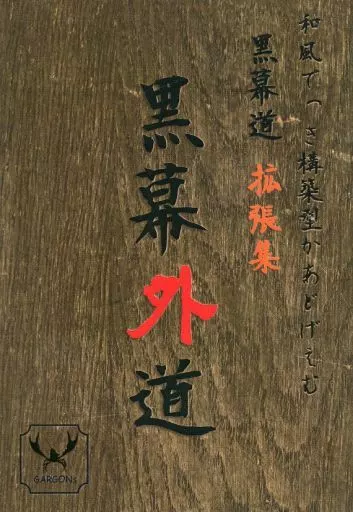 和風でっき構築型かあどげえむ
黒幕道 拡張集
黒幕外道
GARGONs